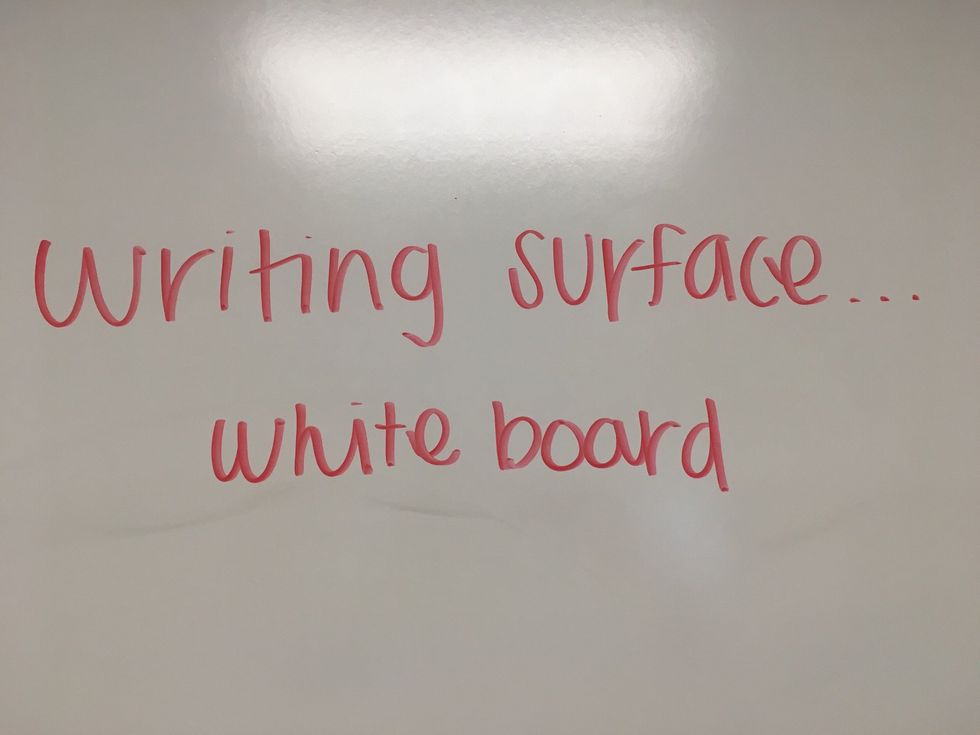 Writing surface...
white board